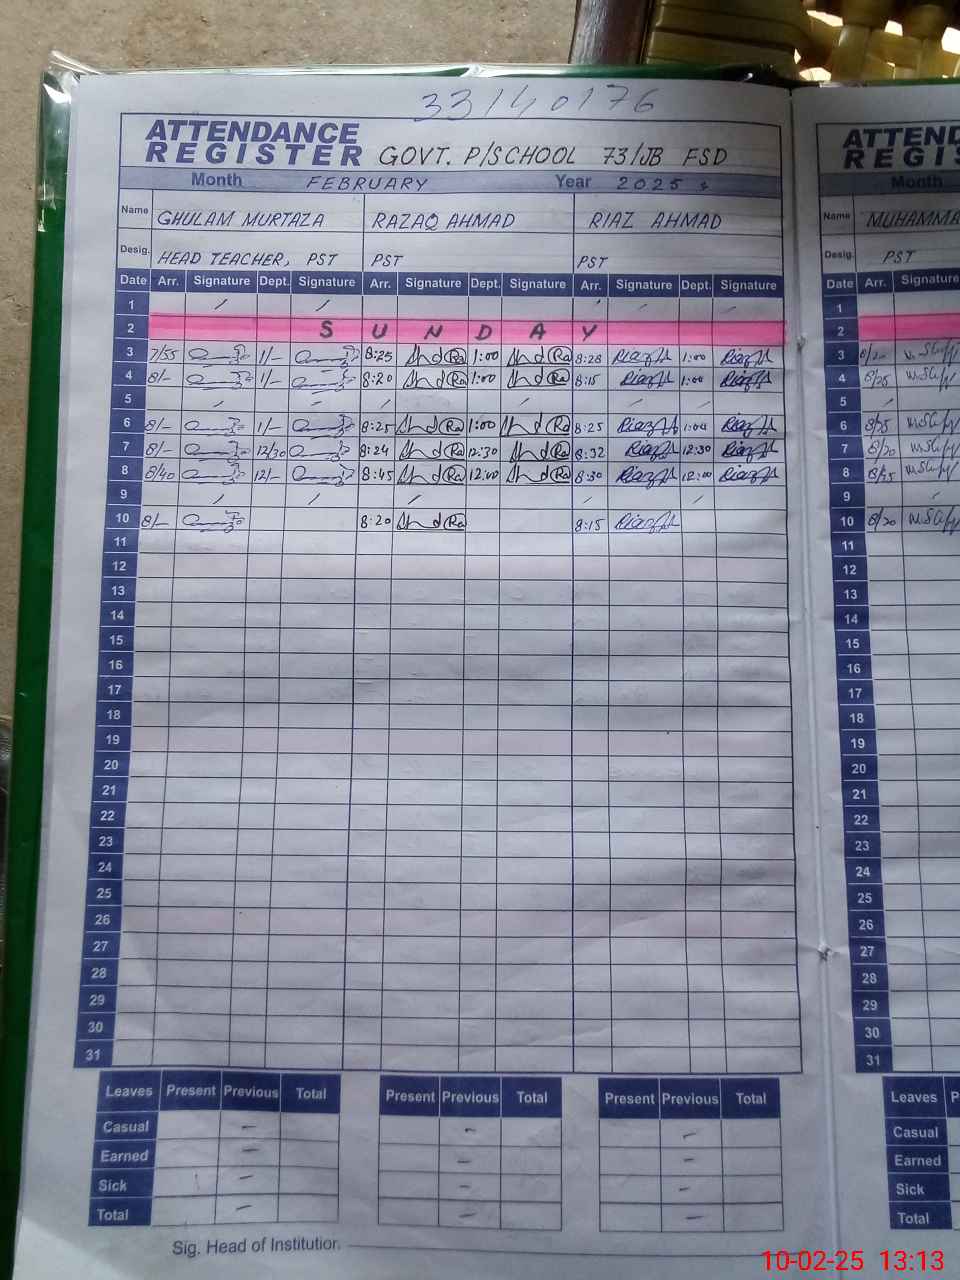 33140176
ATTENDANCE
REGISTER GOVT. P/SCHOOL 73/JB FSD
Month FEBRUARY Year 2025
Name GHULAM MURTAZA RAZAQ AHMAD RIAZ AHMAD
Desig. HEAD TEACHER, PST PST PST
Date Arr. Signature Dept. Signature Arr. Signature Dept. Signature Arr. Signature Dept. Signature
1
2 SUNDAY
3 7/55 1/- 8:25 1:00 8:28 1:00
4 8/- 1/- 8:20 1:00 8:15 1:00
5
6 8/- 1/- 8:25 1:00 8:25 1:00
7 8/- 12/30 8:24 12:30 8:32 12:30
8 8/40 12/- 8:45 12:00 8:30 12:00
9
10 8/- 8:20 8:15
11
12
13
14
15
16
17
18
19
20
21
22
23
24
25
26
27
28
29
30
31
Leaves Present Previous Total Present Previous Total Present Previous Total
Casual - - -
Earned - - -
Sick - - -
Total - - -
Sig. Head of Institution
ATTEND
REGIS
Month
Name MUHAMMA
Desig. PST
Date Arr. Signature
1
2
3
4 8/25
5
6
7 8/20
8
9
10 8/20
11
12
13
14
15
16
17
18
19
20
21
22
23
24
25
26
27
28
29
30
31
Leaves P
Casual
Earned
Sick
Total
10-02-25 13:13